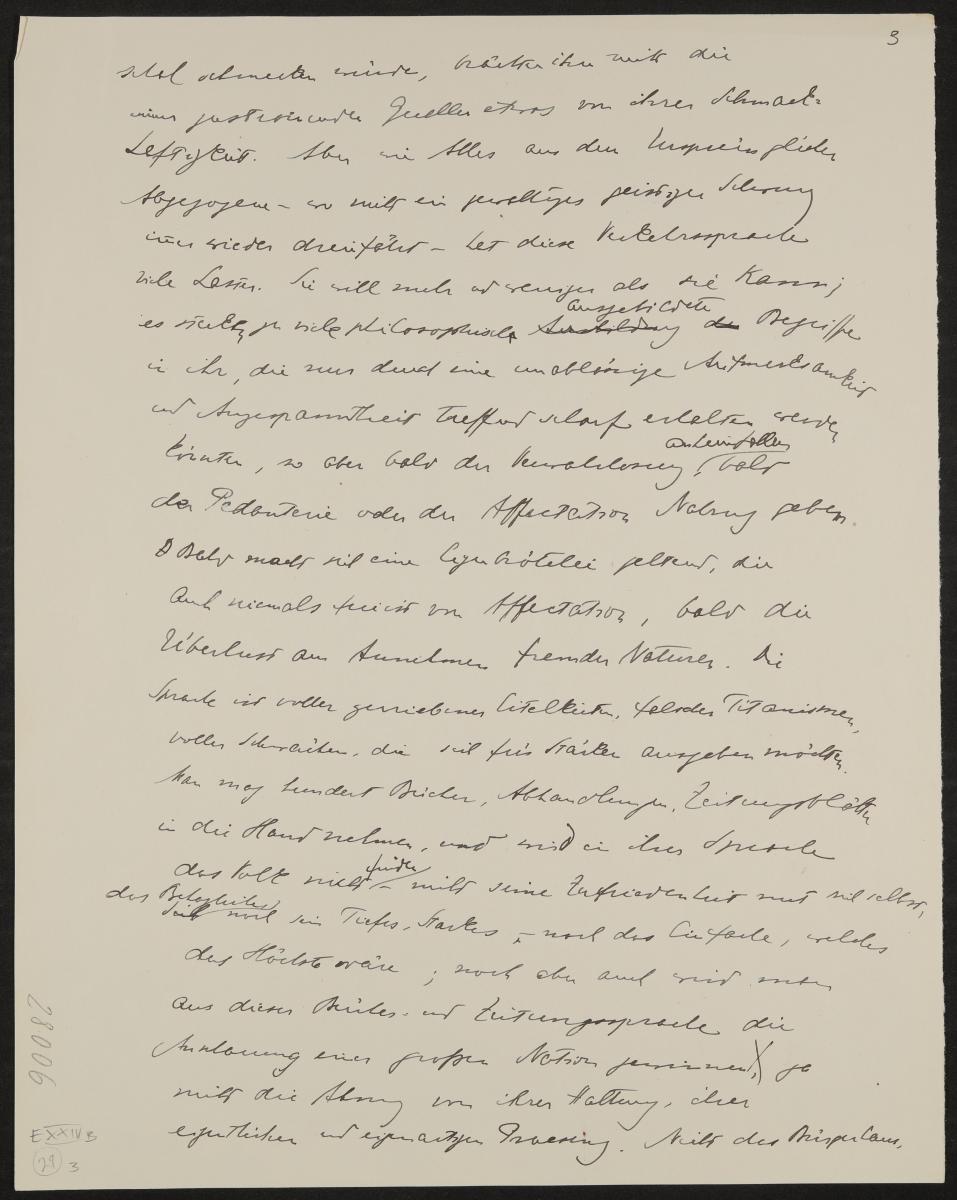 3
schal schmecken würde, brächten ihr nicht die
immer zuströmenden Quellen etwas von ihrer Schmack-
heftigkeit. Aber wie Alles aus dem Ursprünglichen
Abgezogene – wo nicht ein gewaltiger geistiger Schwung
immer wieder dreinfährt – hat diese Verkehrssprache
viele Laster. Sie will mehr und weniger als sie kann;
ausgebildete
es stecken zu viele philosophisch Ausbildung der Begriffe
in ihr, die nur durch eine unablässige Aufmerksamkeit
und Angespanntheit treffend scharf erhalten werden
anheimfallen
könnten, so aber bald der Verwahrlosung, bald
der Pedanterie oder der Affectation Nahrung geben.
Bald macht sich eine Eigenbrötelei geltend, die
auch niemals frei ist von Affectation, bald die
Überlust am Annehmen fremder Naturen. Die
Sprache ist voller geriebener Eitelkeiten, falscher Titanismen,
voller Schwächen, die sich für's Stärken ausgeben möchten.
Man mag hundert Bücher, Abhandlungen, Zeitungsblätter
in die Hand nehmen, und wird in ihrer Sprache
finden
das Volk nicht – nicht seine Zufriedenheit mit sich selbst,
das Behagliche,
noch sein Tiefes, Starkes, – noch das Einfache, welches
das Höchste wäre; noch aber auch wird man
aus dieser Bücher- und Zeitungssprache die
Anschauung einer großen Nation gewinnen, ja
nicht die Ahnung von ihrer Haltung, ihrer
eigentlichen und eigenartigen Prägung. Nicht des Bürgerhaus,
28006
E XXIV B
29 3